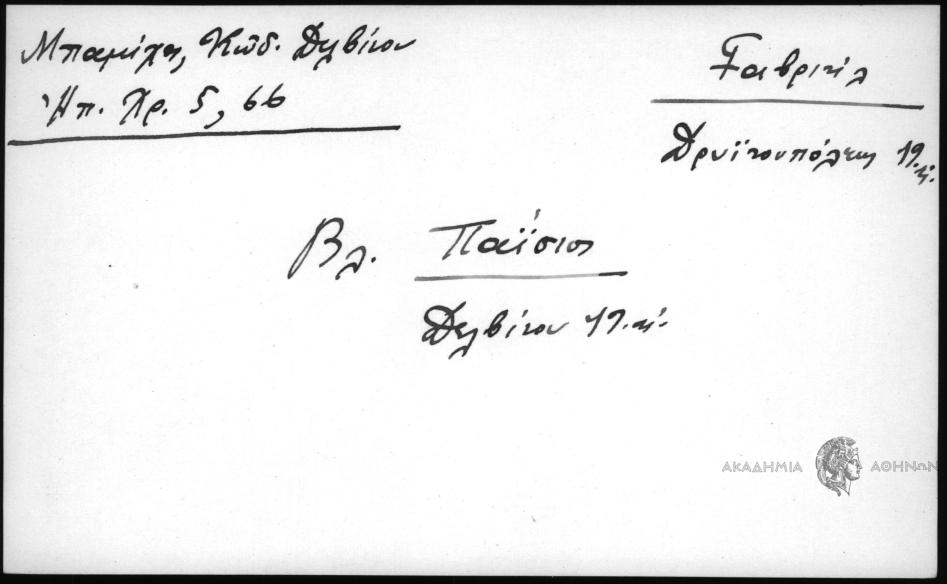 Μπαμίχα, Κῶδ. Δελβίνου
Ἠπ. Χρ. 5, 66
Γαβριήλ
Δρυϊνουπόλεως 19.αἰ.
Βλ. Παΐσιος
Δελβίνου 19.αἰ.
ΑΚΑΔΗΜΙΑ ΑΘΗΝΩΝ